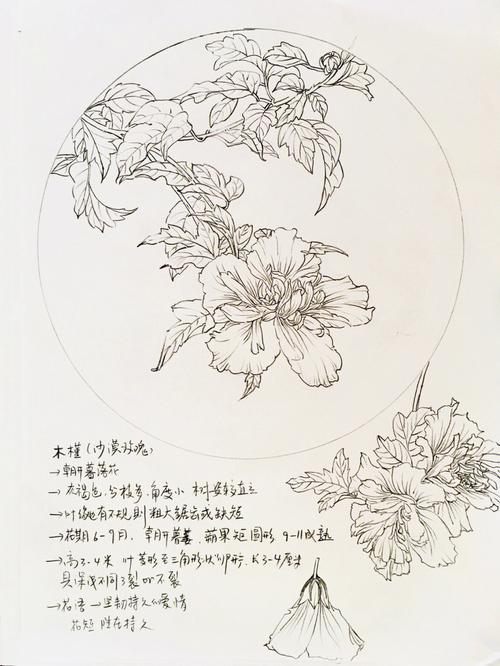 木槿(沙漠玫瑰)
→朝开暮落花
→灰褐色,分枝多,角度小 树姿较直立
→叶缘有不规则粗大锯齿或缺短
→花期6-9月,朝开暮萎,蒴果矩圆形 9-11成熟
→高3-4米 叶菱形至三角形状卵形,长3-4厘米
具深浅不同3裂或不裂
→花语→坚韧持久的爱情
花短 胜在持久